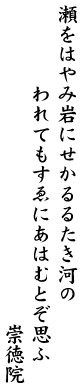 瀬をはやみ岩にせかるるたき河の
われてもすゑにあはむとぞ思ふ
崇徳院